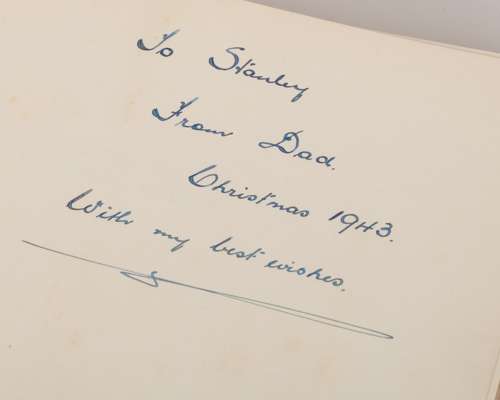 To Stanley
From Dad.
Christmas 1943.
With my best wishes.